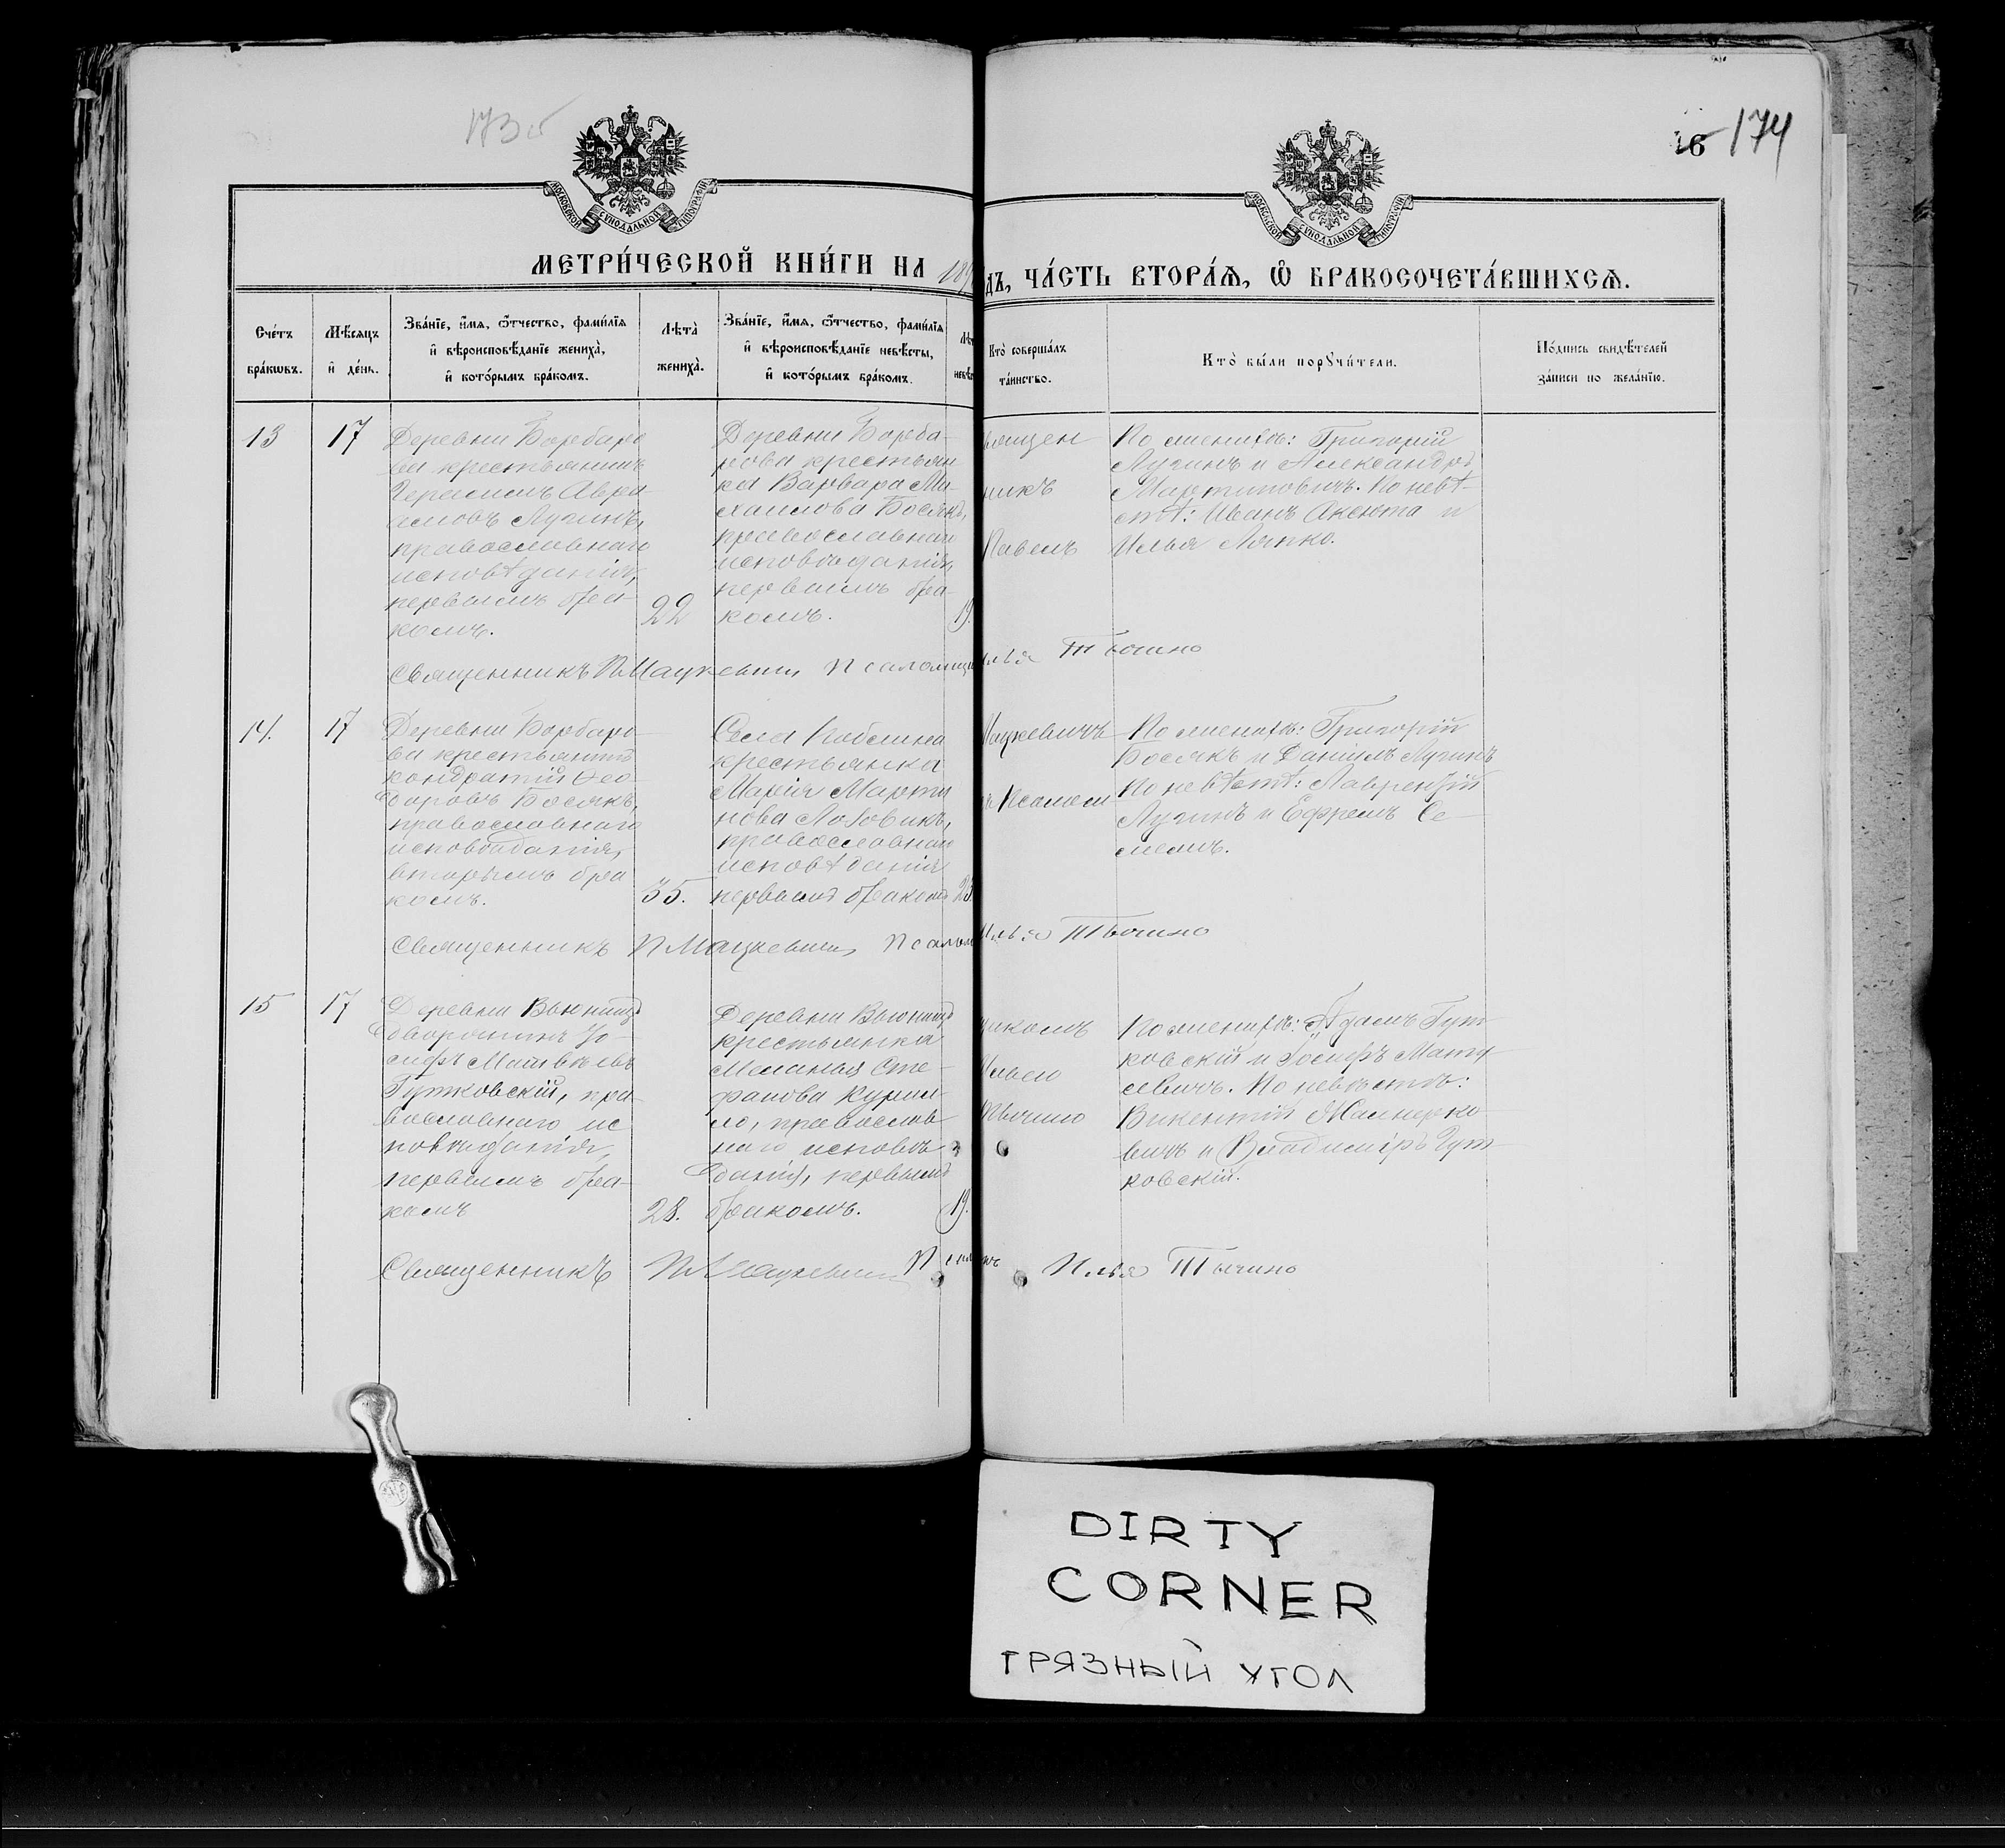 173 об
16 174
МОСКОВСКОЙ СѴНОДАЛЬНОЙ ТИПОГРАФІИ
МОСКОВСКОЙ СѴНОДАЛЬНОЙ ТИПОГРАФІИ
МЕТРИ́ЧЕСКОЙ КНИ́ГИ НА 189 дъ, ЧА́СТЬ ВТОРА́Я, Ѽ БРАКОСОЧЕТА́ВШИХСѦ.
Сче́тъ бра́кѡвъ.
Мѣ́сяцъ и҆ де́нь.
Зва́нїе, и҆́мя, ѻ҆́тчество, фами́лїя
и҆ вѣроисповѣ́данїе жениха̀,
и҆ кото́рымъ бра́комъ.
Лѣта̀
жениха̀.
Зва́нїе, и҆́мя, ѻ҆́тчество, фами́лїя
и҆ вѣроисповѣ́данїе невѣ́сты,
и҆ кото́рымъ бра́комъ.
Кто̀ соверша́лъ
та́инство.
Кто̀ бы́ли порꙋчи́тели.
По́дпись свидѣ́телей
за́писи по жела́нїю.
13
17
Деревни Борбаро
ва крестьянинъ
Герасимъ Авра-
амовъ Лугинъ,
православнаго
исповѣданія,
первымъ бра-
комъ.
22
Деревни Борба-
рова крестьян
ка Варвара Ми-
хаилова Босякъ,
православнаго
исповѣданія,
первымъ бра-
комъ.
19.
вящен
никъ
Павелъ
По женихѣ: Григорій
Лугинъ и Александръ
Мартиновичъ. По невѣ-
стѣ: Иванъ Аксюта и
Илья Ляпко.
Священникъ П Мацкевичъ Псаломщи Илья Тычино
14.
17
Деревни Борбаро
ва крестьянинъ
Кондратій Ѳео-
доровъ Босякъ,
православнаго
исповѣданія,
вторымъ бра
комъ.
35.
Села
крестьянка
Марія Марти
нова Лозовикъ,
православнаго
исповѣданія
первымъ бракомъ
23.
Мацкевичъ
Псалом
По женихѣ: Григорій
Босякъ и Даніилъ Лугинъ
По невѣстѣ: Лаврентій
Лугинъ и Ефремъ Се-
Священникъ П Мацкевичъ, Псалом Илья Тычино
15
17
Деревни Вьюнищъ
дворянинъ Іо-
сифъ Матвѣевъ
Гутковскій, пра-
вославнаго ис
повѣданія,
первымъ бра-
комъ
28.
Деревни Вьюнищъ
крестьянка
Меланія Сте-
фанова Курил-
ло, православ-
наго исповѣ-
данія, первымъ
бракомъ.
19.
щикомъ
Ильею
Тычино
По женихѣ: Адамъ Гут-
ковскій и Іосифъ Мату
севичъ. По невѣстѣ:
Викентій
вичъ и Владиміръ Гут-
ковскій.
Священникъ П Мацкевичъ Псалом Илья Тычино
DIRTY
CORNER
ГРЯЗНЫЙ УГОЛ